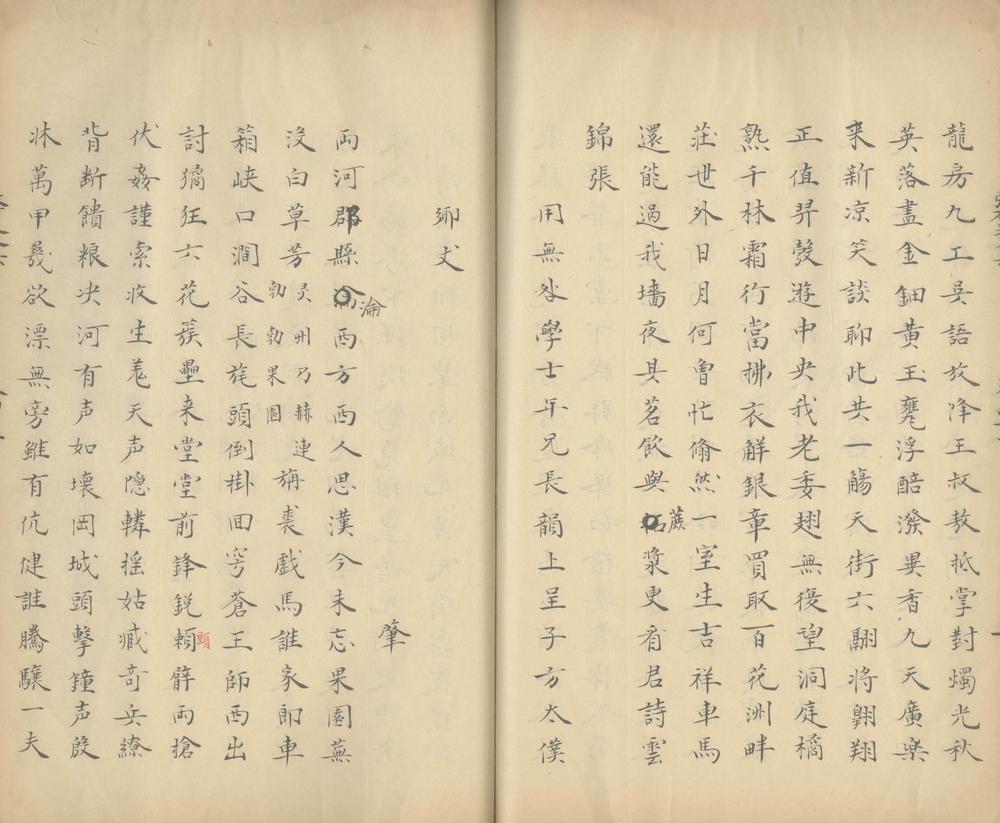 龍房九工吳語放浄王叔敖抵掌對燭光秋
英落盡金鈿黄玉甕浮醅潑異香九天廣樂
来新凉笑談聊此共一觴天街六翮將翺翔
正值羿彀遊中央我老委翅無復望洞庭橘
熟千林霜行當拂衣觧銀章買取百花洲畔
荘世外日月何曾忙翛然一室生吉祥車馬
還能過我墻夜具茗飲與蔗漿更看君詩雲
錦張
用無咎學士年兄長韻上呈子方太僕
卿丈
肇
兩河郡縣淪西方西人思漢今未忘果園蕪
没白草芳
灵州乃赫連
勃勃果園
旃裘戯馬誰家郎車
箱峡口澗谷長旄頭倒掛囬穹蒼王師西出
討獝狂六花蔟壘来堂堂前鋒鋭頭臂兩槍
伏姦謹索收生羗天声隠轔揺姑臧奇兵繚
背断饋粮决河有声如壞岡城頭擊鐘声殷
牀萬甲㡬欲漂無旁雖有伉健誰騰驤一夫